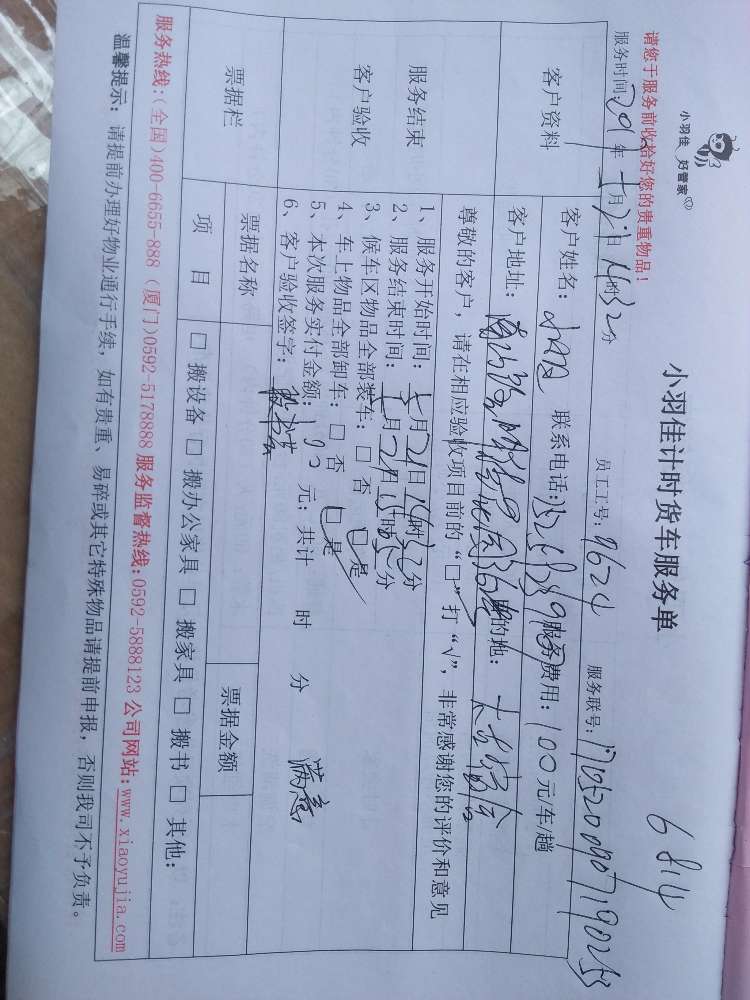 小羽佳 好管家
小羽佳计时货车服务单
6814
请您于服务前收拾好您的贵重物品！
服务时间: 年 月21日14时32分 员工工号: 9624 服务联号:
客户资料
客户姓名: 联系电话: 服务费用: 100元/车/趟
客户地址: 目的地:
服务结束 客户验收
尊敬的客户，请在相应验收项目前的“□”打“√”，非常感谢您的评价和意见
1、服务开始时间: 月21日14时32分
2、服务结束时间: 月21日15时 分
3、候车区物品全部装车: □ 否 □ 是
4、车上物品全部卸车: □ 否 □ 是
5、本次服务实付金额: 元; 共计 时 分 满意
6、客户验收签字:
票据栏
票据名称 票据金额
项 目 □ 搬设备 □ 搬办公家具 □ 搬家具 □ 搬书 □ 其他:
服务热线:(全国)400-6655-888 (厦门)0592-5178888 服务监督热线:0592-5888123 公司网站:www.xiaoyujia.com
温馨提示: 请提前办理好物业通行手续，如有贵重、易碎或其它特殊物品请提前申报，否则我司不予负责。